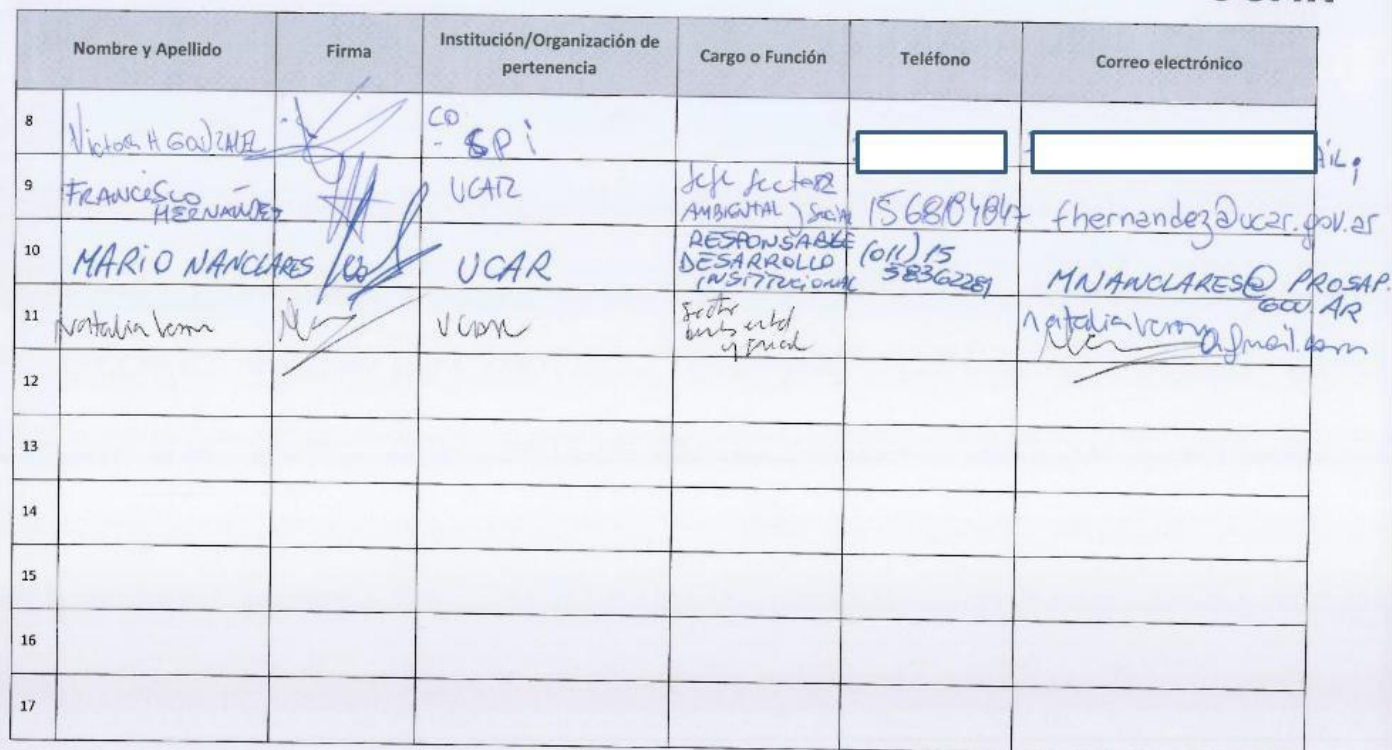 Nombre y Apellido Firma Institución/Organización de pertenencia Cargo o Función Teléfono Correo electrónico
8 Victor H GONZALEZ CD SPI
9 FRANCESCO HERNANDEZ UCAR Jefe Sector AMBIENTAL y Social fhernandez@ucar.gov.ar
10 MARIO NANCLARES UCAR RESPONSABLE DESARROLLO INSTITUCIONAL (011) 15 58362281 MNANCLARES@PROSAP.GOV.AR
11 Natalia UCAR Sector @gmail.com
12
13
14
15
16
17